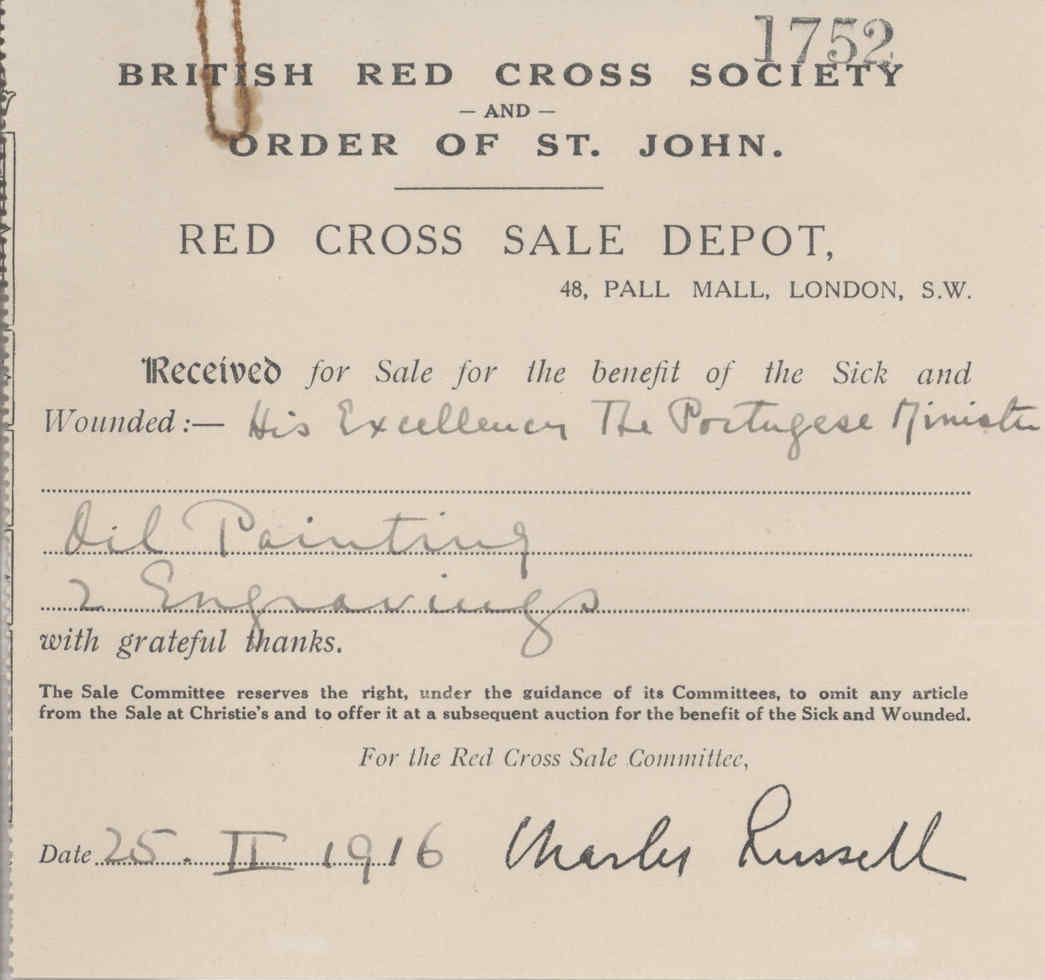 1752
BRITISH RED CROSS SOCIETY
— AND —
ORDER OF ST. JOHN.
RED CROSS SALE DEPOT,
48, PALL MALL, LONDON, S.W.
Received for Sale for the benefit of the Sick and
Wounded :— His Excellency The Portugese Minister
Oil Painting
2 Engravings
with grateful thanks.
The Sale Committee reserves the right, under the guidance of its Committees, to omit any article
from the Sale at Christie's and to offer it at a subsequent auction for the benefit of the Sick and Wounded.
For the Red Cross Sale Committee,
Date 25. II 1916 Charles Russell